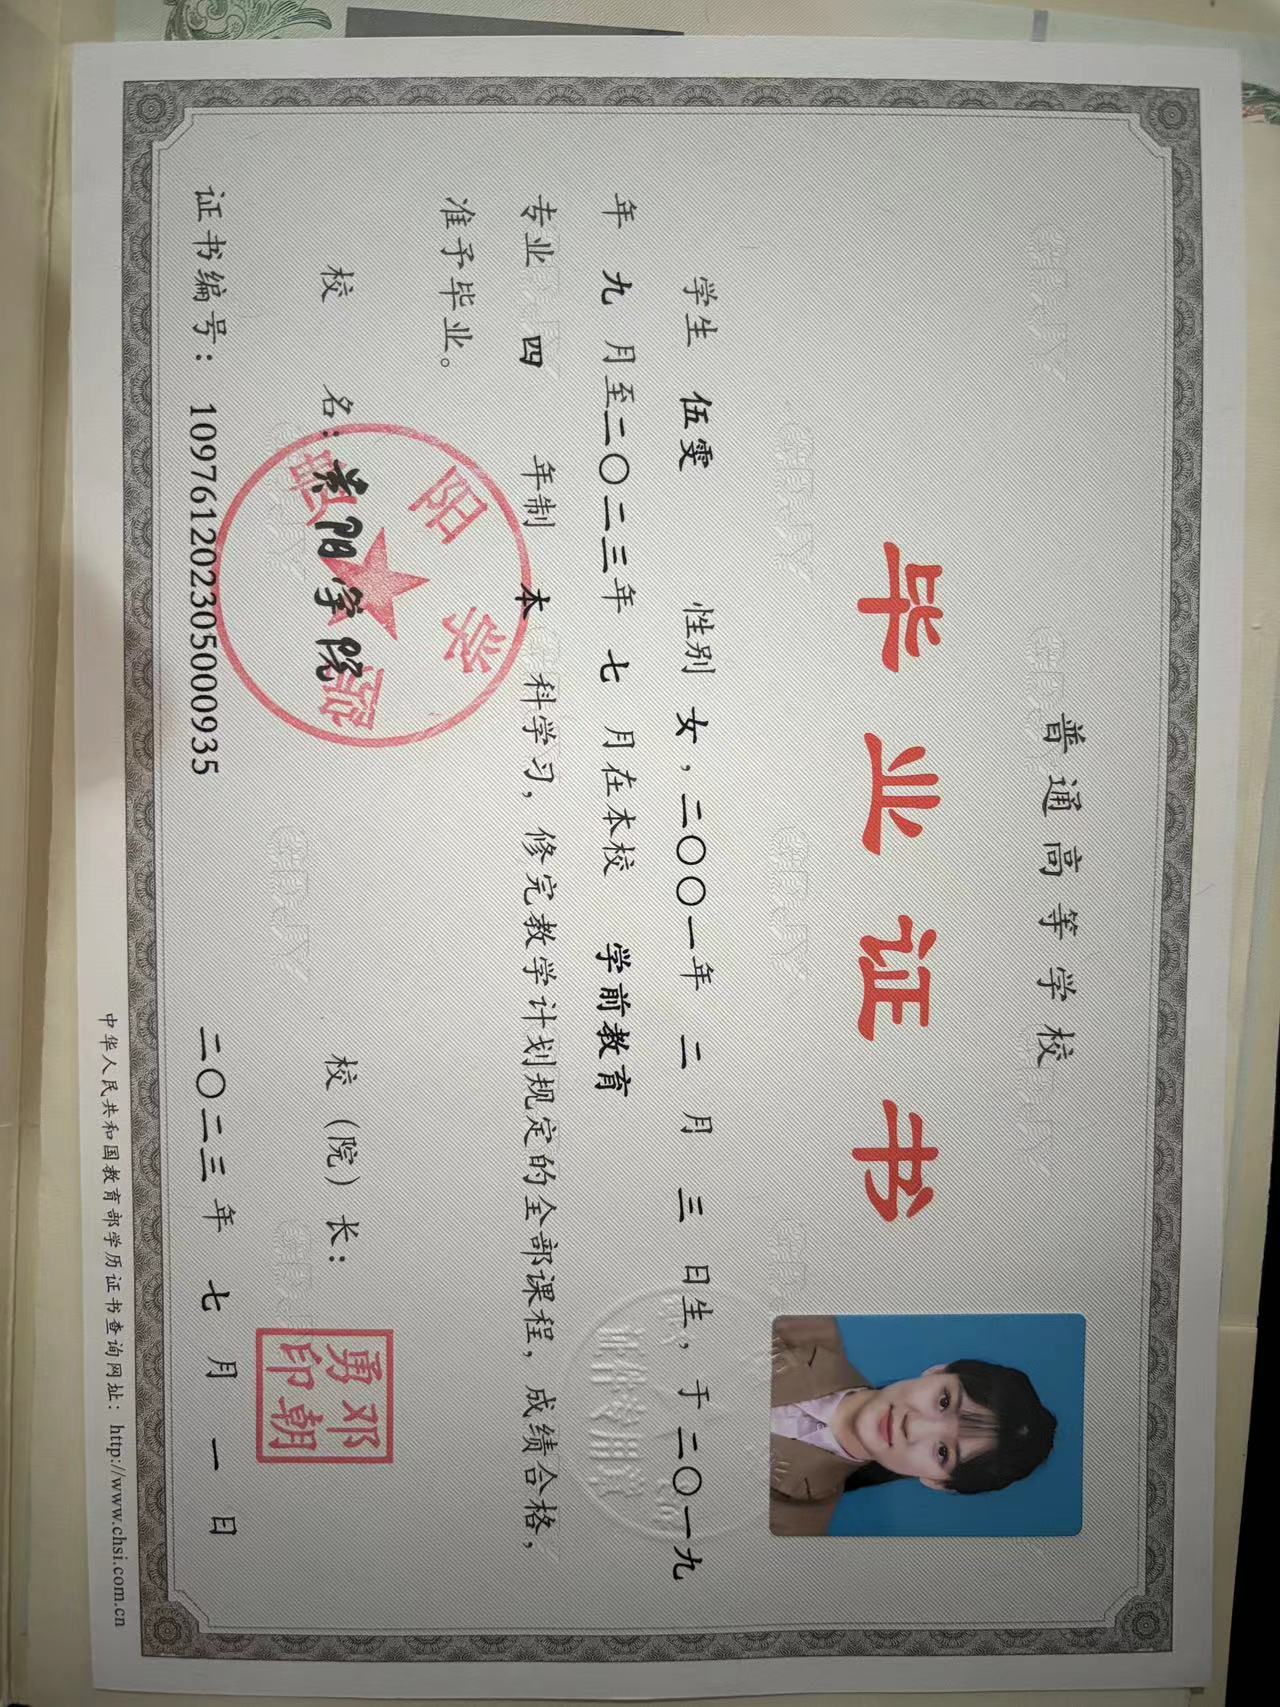 普通高等学校
毕业证书
学生 伍雯 性别 女，二〇〇一年 二 月 三 日生，于 二〇一九
年 九 月至二〇二三年 七 月在本校 学前教育
专业 四 年制 本 科学习，修完教学计划规定的全部课程，成绩合格，
准予毕业。
校 名：景阳学院 校（院）长：
邓朝勇印
证书编号：109761202305000935 二〇二三年 七 月 一 日
中华人民共和国教育部学历证书查询网址：http://www.chsi.com.cn